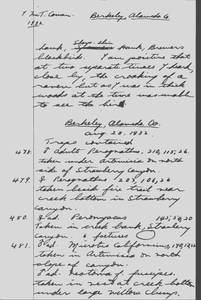 I. McT. Cowan
1932
Berkeley, Alameda Co.
hawk, Hawk, Brewers
blackbird. I am positive that
at two separate times I heard
close by the croaking of a
raven but as I was in thick
woods at the time was unable
to see the bird
Berkeley, Alameda Co.
Aug. 28, 1932
Traps contained
478. Adult Perognathus,
taken under Artemisia on north
side of Strawberry Canyon
479. Perognathus
taken beside fire trail near
creek bottom in Strawberry
Canyon
480. ad. Peromyscus
taken in creek bank, Strawberry
Canyon
481. ad. Microtus californicus,
taken in Artemisia on north
slope of canyon.
ad. Neotoma f. fuscipes.
taken in nest at creek bottom
under large willow clump.